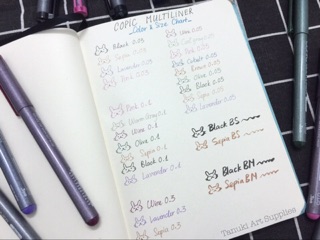 COPIC MULTILINER
Color & Size Chart
Black 0.03
Sepia 0.03
Lavender 0.03
Pink 0.03
Pink 0.1
Warm Gray 0.1
Wine 0.1
Olive 0.1
Sepia 0.1
Black 0.1
Lavender 0.1
Wine 0.3
Lavender 0.3
Sepia 0.3
Wine 0.05
0.05
Pink 0.05
Cobalt 0.05
Brown 0.05
Olive 0.05
Black 0.05
Sepia 0.05
Lavender 0.05
Black BS
Sepia BS
Black BM
Sepia BM
Tanuki Art Supplies